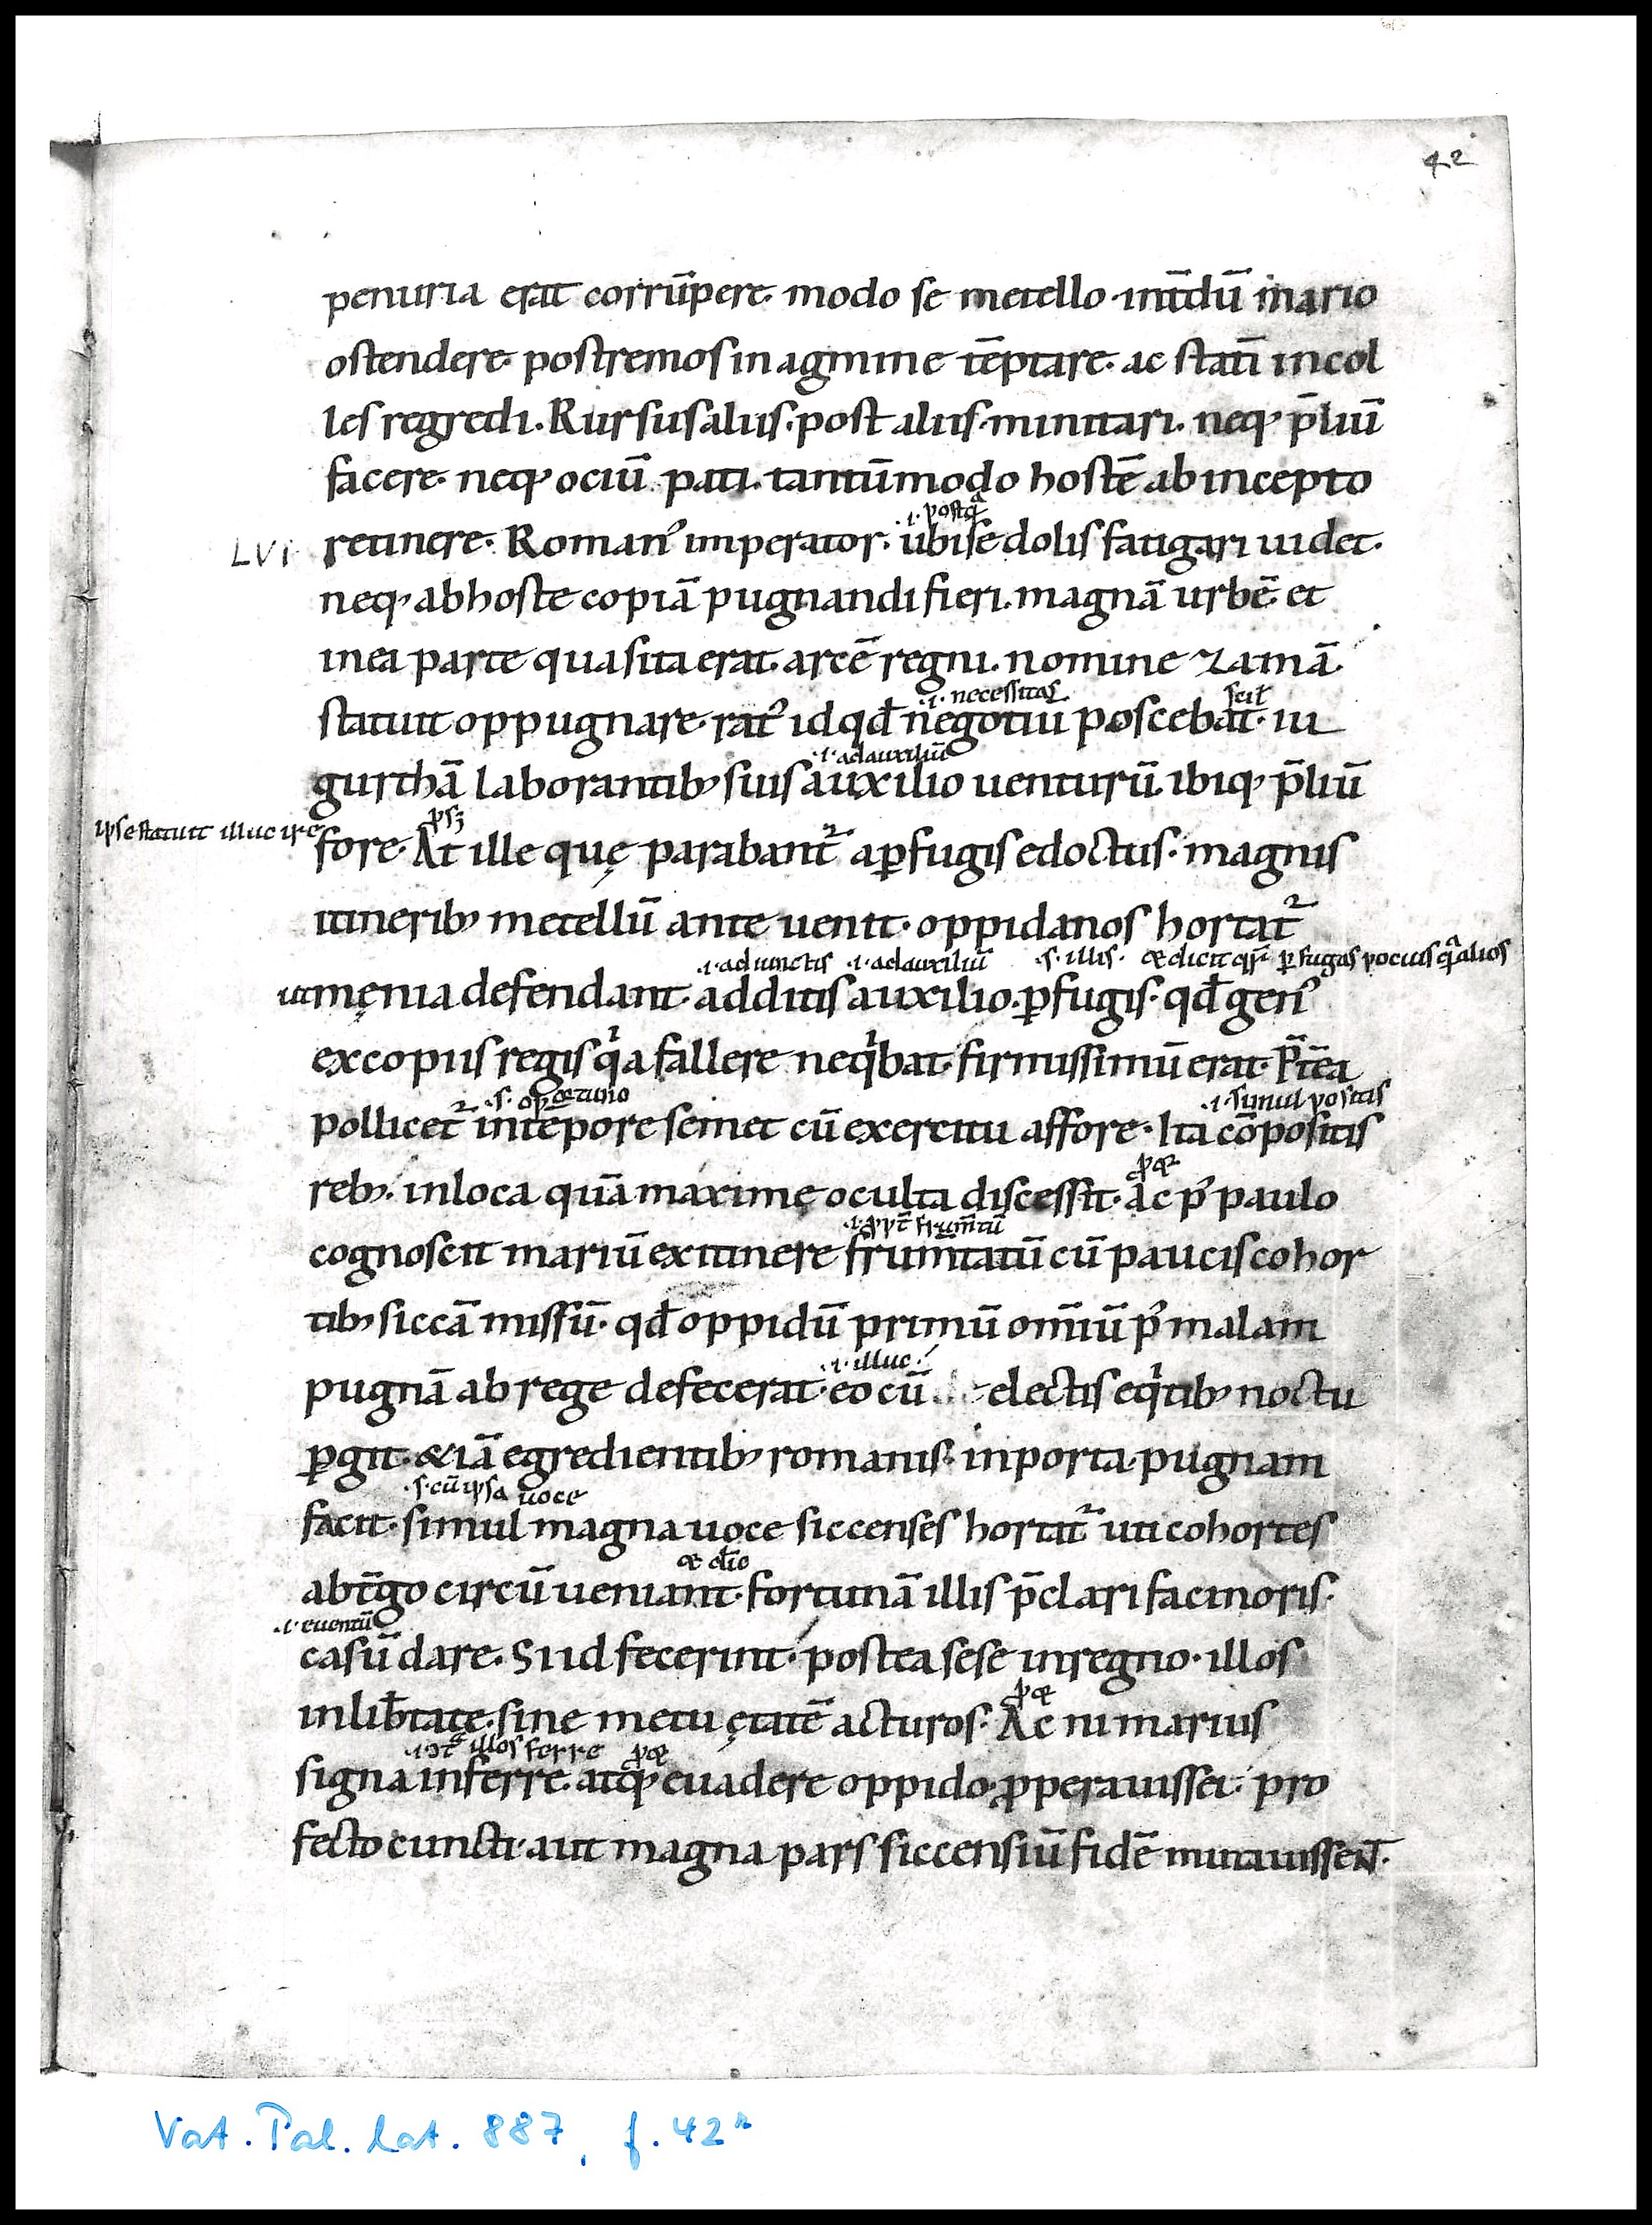 42
penuria erat corrūpere· modo se metello ·int̄dū mario
ostendere· postremos in agmine tēptare· ac statī in col
les regredi. Rursus aliis· post aliis· minitari. neq; p̄liū
facere· neq; ociū pati. tantūmodo hostē ab incepto
.i. postq̄
LVI retinere. Roman᾿ imperator. ubi se dolis fatigari uidet.
neq; ab hoste copiā pugnandi fieri. magnā urbē· et
in ea parte qua sita erat. arcē regni. nomine zamā.
.i. necessitas scił
statuit oppugnare· rat᾿ id qđ negotiū poscebat· iu
.i. ad auxiliū
gurthā laborantib; suis auxilio uenturū. ibiq; p̄liū
ipse statuit illuc ire pſʒ
fore· At ille quę parabant᷑ a ꝑfugis edoctus· magnis
itinerib; metellū ante uenit· oppidanos hortat᷑
.i. adiunctis .i. ad auxiliū .s. illis. & dicit ꝑfugas pocius alios
ut męnia defendant· additis auxilio. ꝑfugis· qđ gen᾿
ex copiis regis qͥa fallere neqͥbat· firmissimū erat· P̄tēa
.s. oportuno .i. simul positis
pollicet᷑ in tēpore semet cū exercitu affore· Ita cōpositis
p &
reb;. in loca quā maxime oculta discessit· ac p᾿ paulo
.i. ꝓpt̄ frum̄tū
cognoscit mariū ex itinere frum̄tatū cū paucis cohor
tib; siccā missū· qđ oppidū primū om̄iū p᾿ malam
.i. illuc.
pugnā ab rege defecerat· eo cū electis eqͥtib; noctu
ꝑgit· & iā egredientib; romanis· in porta· pugnam
.s. cū ipsa uoce
facit· simul magna uoce siccenses hortat᷑ uti cohortes
& 
ab t̄go circū ueniant· fortunā illis p̄clari facinoris·
.i. euentū
casū dare· Si id fecerint· postea sese in regno· illos
p &
in lib̄tate· sine metu ętatē acturos· Ac ni marius
illos ferre p &
signa inferre· atq; euadere oppido ꝓperauisset· pro
fecto cuncti· aut magna pars siccensiū fidē mutauissent·
Vat. Pal. lat. 887, f. 42r